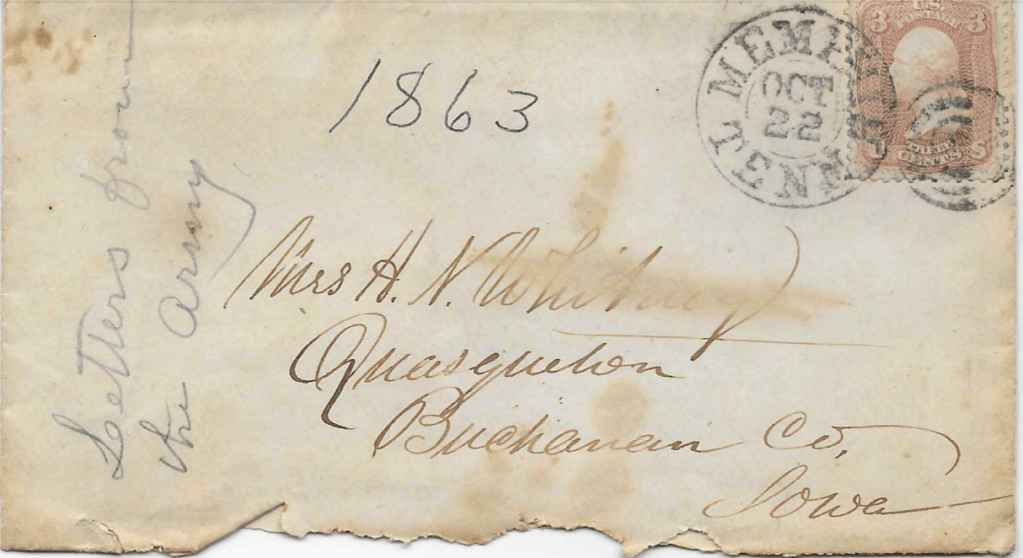 Letters from
the Army
1863
MEMPHIS TENN
OCT
22
U.S. POSTAGE
3 3
THREE
CENTS
U S
Mrs H. N. Whitney
Quasqueton
Buchanan Co,
Iowa